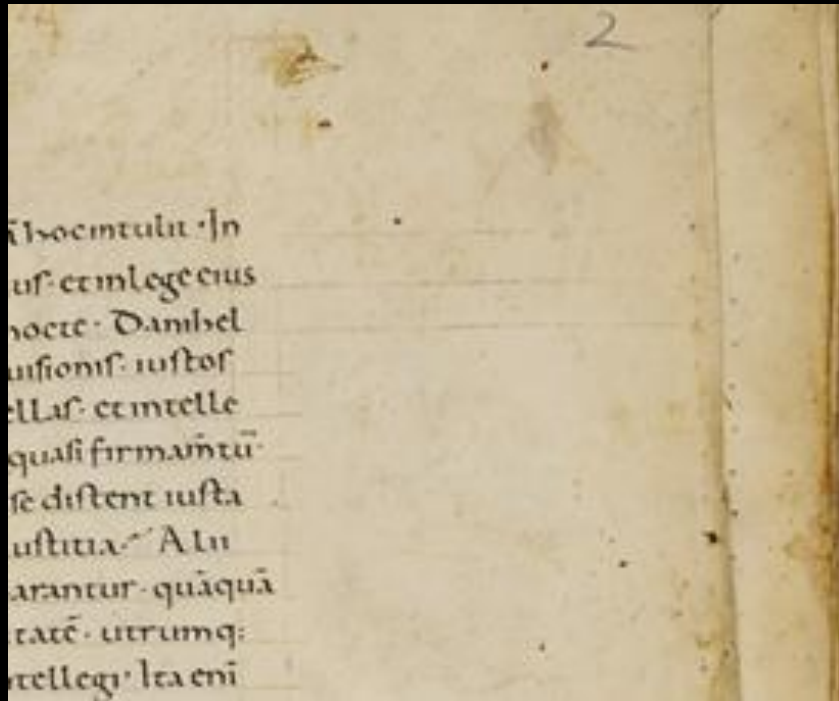 2
hoc intulit · In
us · et in lege eius
nocte · Danihel
uisionis · iustos
ellas · et intelle
quasi firmam̄tū ·
se distent iusta
ustitia · Alii
arantur · quāquā
tatē · utrumq:
tellegi · Ita enī